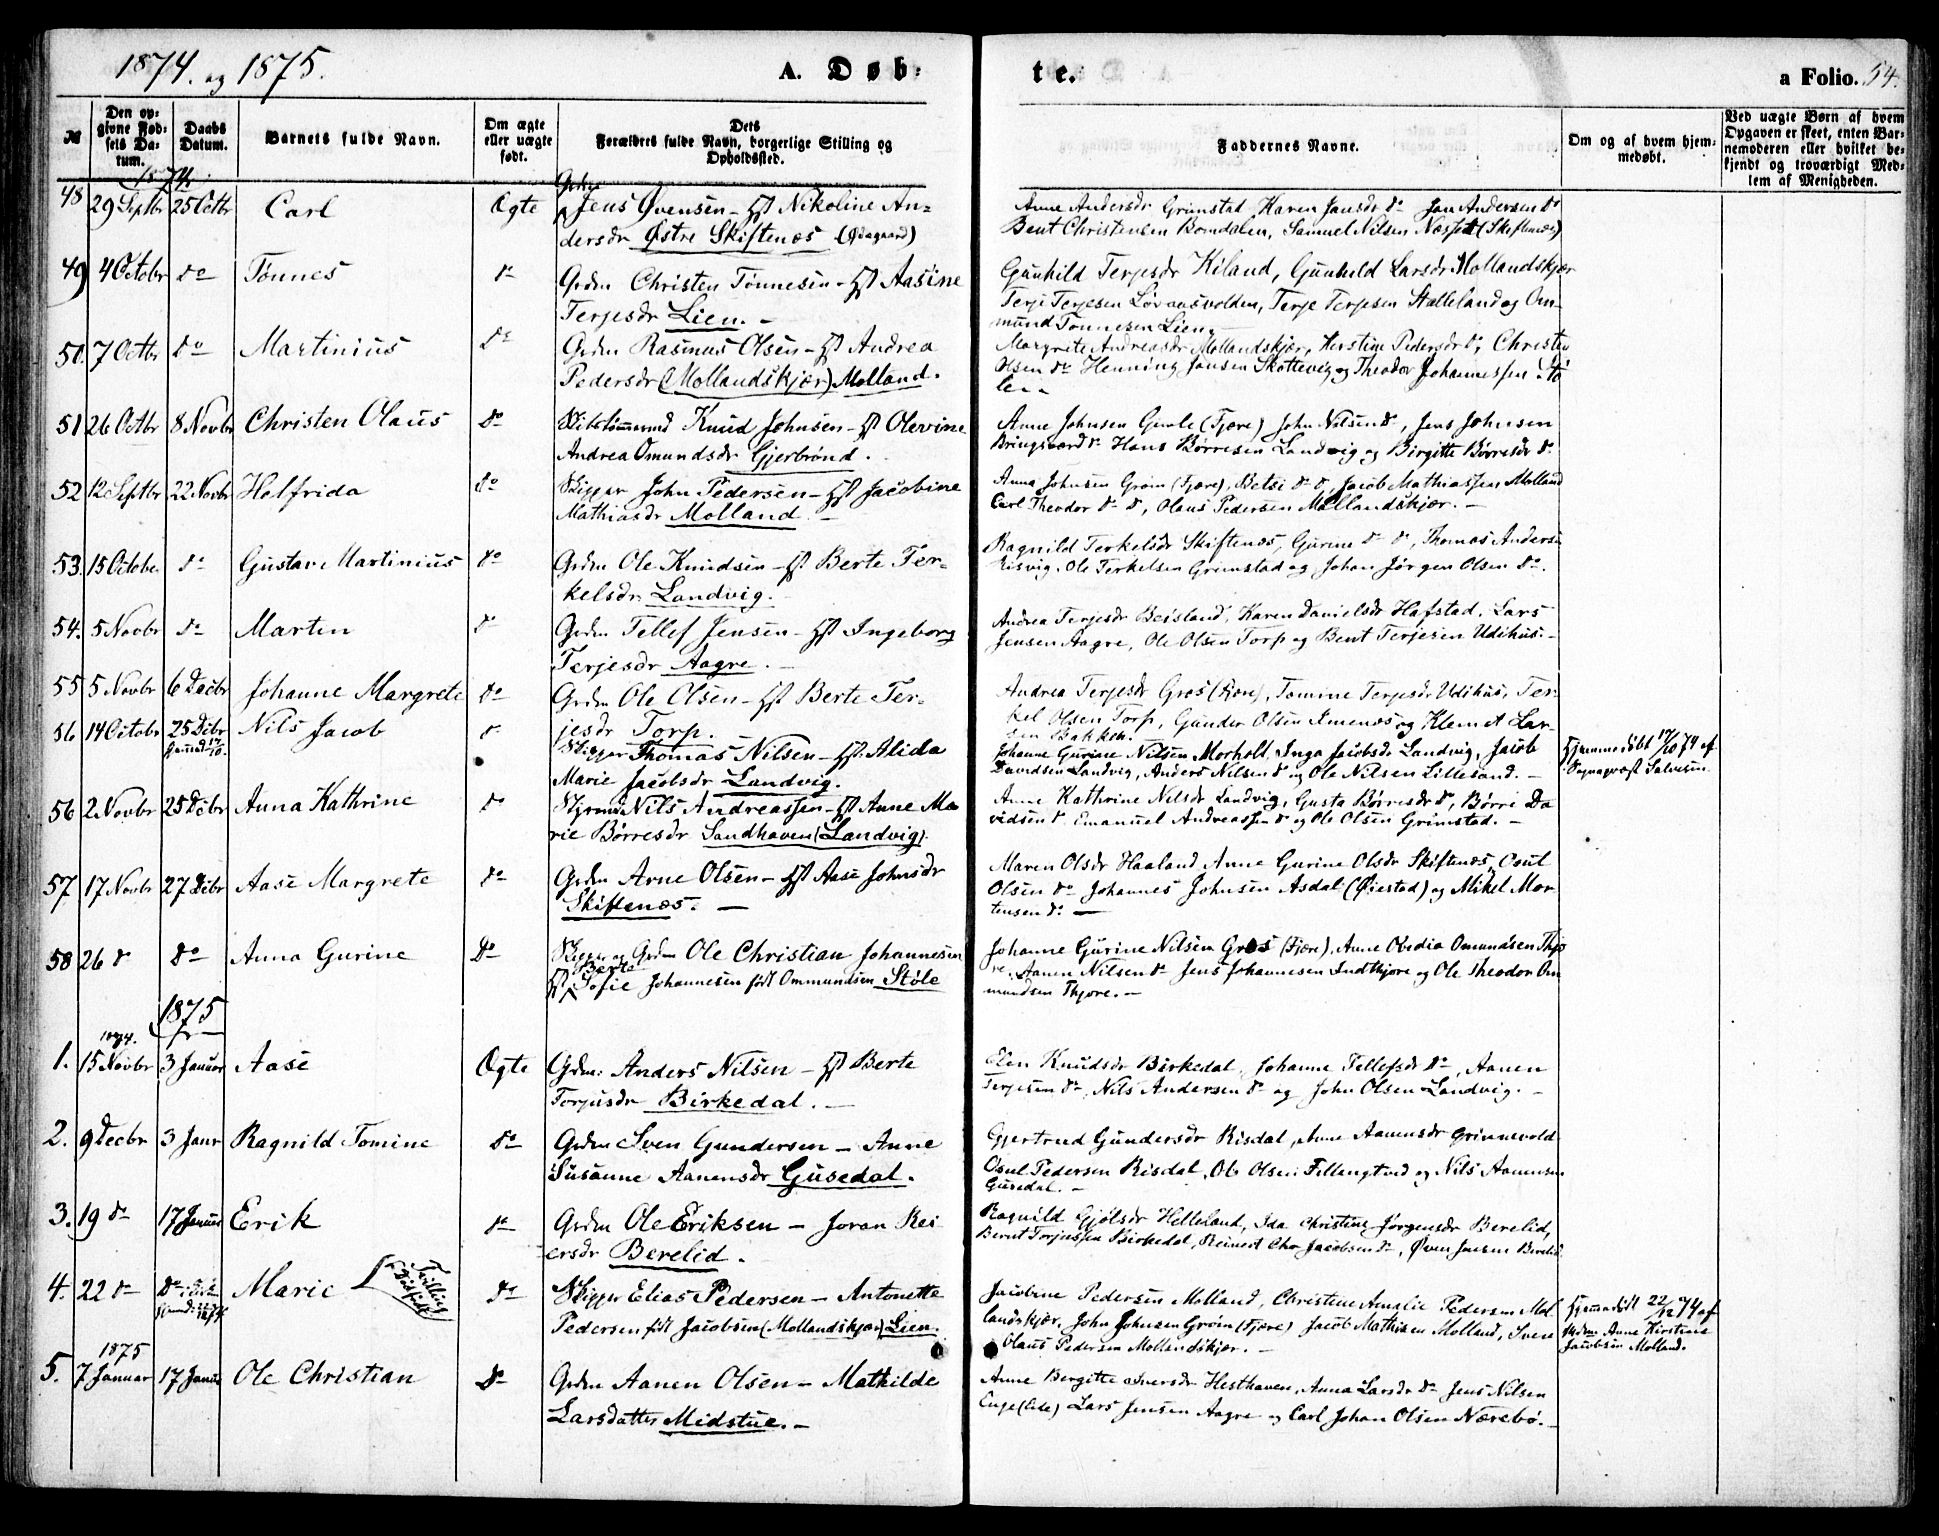 1874. og 1875.
A. Døb-
te.
a Folio. 54.
№
Den op-
givne Fød-
sels Da-
tum.
Daabs
Datum.
Barnets fulde Navn.
Om ægte
eller uægte
født.
Dets
Forældres fulde Navn, borgerlige Stilling og
Opholdssted.
Faddernes Navne.
Om og af hvem hjem-
medøbt.
Ved uægte Børn af hvem
Opgaven er skeet, enten Bar-
nemoderen eller hvilket be-
kjendt og troværdigt Med-
lem af Menigheden.
1874
48 29 Septbr 25 Octbr Carl Ægte Jens Øvensen – Hst Nikoline An-
dersdr Østre Skiftenæs (Ødegaard)
Anne Andersdr Grimstad Karen Jansdr do Jan Andersen do
Bent Christensen Bomdalen, Samuel Nilsen (Skiftenæs)
49 4 Octobr do Tønnes do Grdm Christen Tønnesen – Hst Aasine
Terjesdr Lien. –
Gunhild Terjesdr Kiland, Gunhild Larsdr Mollandskjær
Terje Terjesen Løvaasvolden, Terje Terjesen Stælleland og Om-
mund Tønnesen Lien.
50. 7 Octbr do Martinius do Grdm Rasmus Olsen – Hst Andrea
Pedersdr (Mollandskjær) Molland.
Margrete Andreasdr Mollandskjær, Kirstine Pedersdr do, Christen
Olsen do Henning Jensen Skottevig og Theodor Johannessen Stø-
le. –
51 26 Octbr 8 Novbr Christen Olaus do Skibstømmermd Knud Johnsen – Hst Olevine
Andrea Omundsdr Gjerbrønd.
Anne Johnsen (Fjære) John Nilsen do, Jens Johnsen
Bringsværd do Hans Børresen Landvig og Birgitte Børresdr do.
52 12 Septbr 22 Novbr Helfrida do Skipper John Pedersen – Hst Jacobine
Mathiasdr Molland. –
Anna Johnsen Grøm (Fjære), Betsi do do, Jacob Mathiassen Molland
Carl Theodor do do, Olaus Pedersen Mollandskjær. –
53. 15 Octobr do Gustav Martinius do Grdm Ole Knudsen – Hst Berte Ter-
kelsdr Landvig.
Ragnild Terkelsdr Skiftenæs, Gurine do do, Thomas Andersen
Risvig, Ole Terkelsen Grimstad og Johan Jørgen Olsen do.
54. 5 Novbr do Martin do Grdm Tellef Jensen – Hst Ingeborg
Terjesdr Aagre. –
Andrea Terjesdr Beisland, Karen Danielsdr Hafstad, Lars
Jensen Aagre, Ole Olsen Torp og Bent Terjesen Udihus. –
55 5 Novbr 6 Decbr Johanne Margrete do Grdm Ole Olsen – Hst Berte Ter-
jesdr Torp.
Andrea Terjesdr Gros (Fjære), Tomine Terjesdr Udihus, Ter-
kel Olsen Torp, Gunder Olsen Imenæs og Klemet Lar-
sen Bakken.
56 14 Octobr 25 Dcbr Nils Jacob do Skipper Thomas Nilsen – Hst Alida
Marie Jacobsdr Landvig.
Johanne Gurine Nilsen Morholt, Inga Jacobsdr Landvig, Jacob
Davidsen Landvig, Anders Nilsen do og Ole Nilsen Lillesand. –
Hjemmedøbt 17/10 74 af
Sognepræst
56 2 Novbr 25 Dcbr Anna Kathrine do Styrmd Nils Andreassen – Hst Anne Ma-
rie Børresdr Sandhaven (Landvig).
Anne Kathrine Nilsdr Landvig, Gusta Børresdr do, Børre Da-
vidsen do, Emanuel Andreassen do og Ole Olsen Grimstad. –
57 17 Novbr 27 Dcbr Aase Margrete do Grdm Arne Olsen – Hst Aase Johnsdr
Skiftenæs. –
Maren Olsdr Haaland, Anne Gurine Olsdr Skiftenæs, Osul
Olsen do Johannes Johnsen Asdal (Øiestad) og Mikel Mor-
tensen do –
58 26 do do Anna Gurine do Skipper og Grdm Ole Christian Johannesen
Hst Berte Sofie Johannesen født Ommundsen Støle
Johanne Gurine Nilsen Gros (Fjære), Anne Obedia Omundsen Thjø-
re, Aanen Nilsen do Jens Johannesen Indthjore og Ole Theodor Om-
mundsen Thjøre. –
1875
1874.
1. 15 Novbr 3 Januar Aase Ægte Grdm: Anders Nilsen – Hst Berte
Torjusdr Birkedal. –
Elen Knudsdr Birkedal, Johanne Tellefsdr do, Aanen
Terjesen do, Nils Andersen do og John Olsen Landvig. –
2. 9 Decbr 3 Janr Ragnild Tomine do Grdm Sven Gundersen – Anne
Susanne Aanensdr Gusedal.
Gjertrud Gundersdr Risdal, Anne Aanensdr Grinnevold
Osul Pedersen Risdal, Ole Olsen Fillengtved og Nils Aanensen
Gusedal. –
3. 19 do 17 Januar Erik do Grdm Ole Eriksen – Joran Rei-
ersdr Berelid.
Ragnild Gjølsdr Helleland, Ida Christine Jørgensdr Berelid,
Bernt Torjussen Birkedal, Reinert Chr Jacobsen do, Øven Jensen Berelid
4. 22 do do Marie Tvilling
do Skipper Elias Pedersen – Antonette
Pedersen født Jacobsen (Mollandskjær) Lien.
Jacobine Pedersen Molland, Christine Amalie Pedersen Mol-
landskjær, John Johnsen Grøm (Fjære) Jacob Mathisen Molland, Sven
Olaus Pedersen Mollandskjær. –
Hjemmedøbt 22/12 74 af
Jrdm Anne Kirstine
Jacobsen Molland.
1875
5. 7 Januar 17 Januar Ole Christian do Grdm Aanen Olsen – Mathilde
Larsdatter Midstue. –
Anne Bergitte Iversdr Hesthaven, Anna Larsdr do Jens Nilsen
Enge (Eide) Lars Jensen Aagre og Carl Johan Olsen Nærebø. –